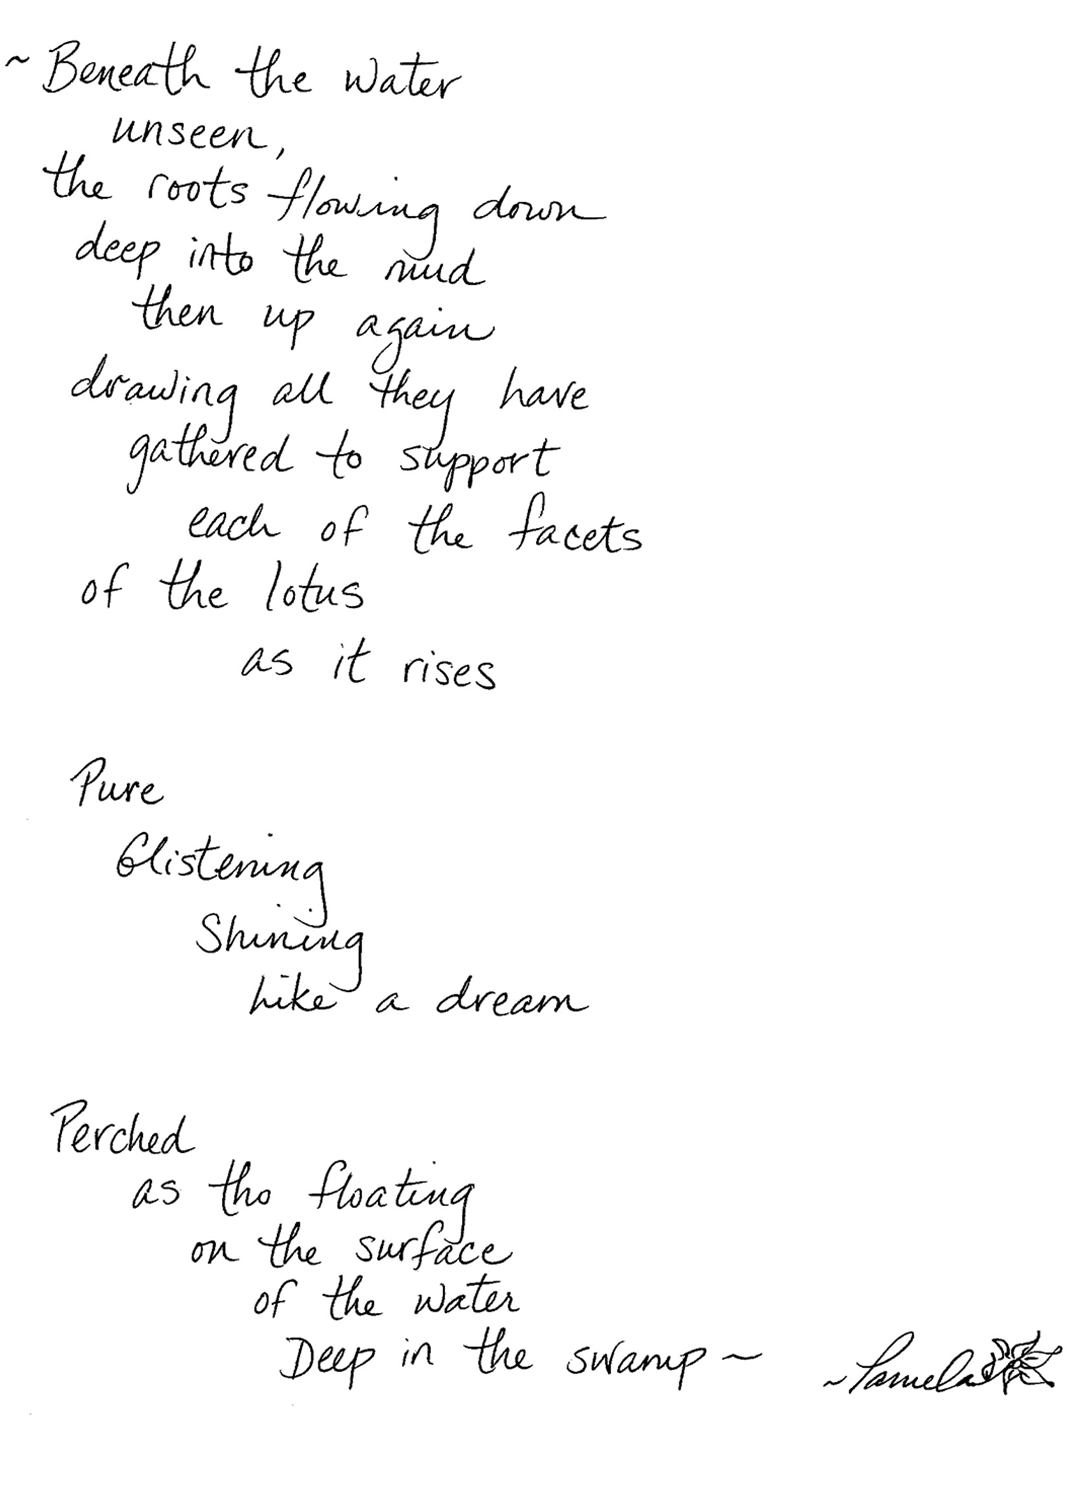 ~ Beneath the water
unseen,
the roots flowing down
deep into the mud
then up again
drawing all they have
gathered to support
each of the facets
of the lotus
as it rises
Pure
Glistening
Shining
Like a dream
Perched
as tho floating
on the surface
of the water
Deep in the swamp ~
~Pamela